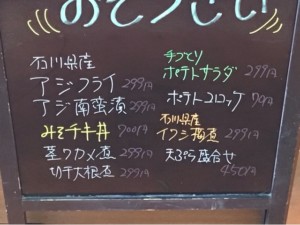 おそうざい
石川県産
アジフライ 299円
アジ南蛮漬 299円
みそチキ丼 700円
茎ワカメ煮 299円
切干大根煮 299円
手づくり
ポテトサラダ 299円
ポテトコロッケ 79円
石川県産
イワシ梅煮 299円
天ぷら盛合せ
450円